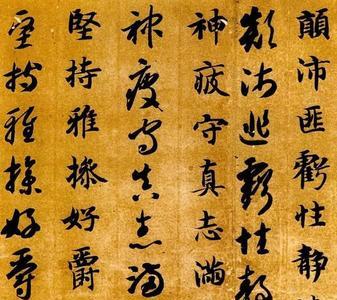 顛沛匪虧性靜
顛沛匪虧性靜
神疲守真志滿
神疲守真志滿
堅持雅操好爵
堅持雅操好爵